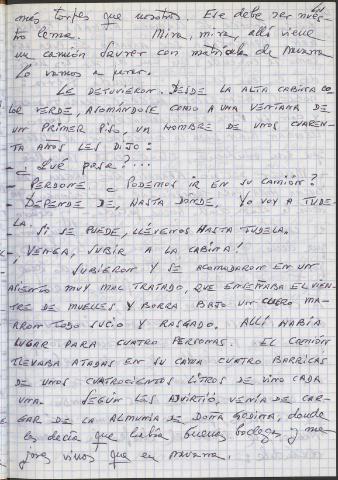 más torpes que nosotros. Ese debe ser nues-
tro lema. Mira, mira, allí viene
un camión Saurer con matrícula de Navarra
Lo vamos a parar.
LE DETUVIERON. DESDE LA ALTA CABINA CO-
LOR VERDE, ASOMÁNDOSE COMO A UNA VENTANA DE
UN PRIMER PISO, UN HOMBRE DE UNOS CUAREN-
TA AÑOS LES DIJO:
- ¿Qué pasa?...
- PERDONE. ¿PODEMOS IR EN SU CAMIÓN?
- DEPENDE DE, HASTA DÓNDE. YO VOY A TUDE-
LA.
- SI SE PUEDE, LLÉVENOS HASTA TUDELA.
- ¡VENGA, SUBIR A LA CABINA!
SUBIERON Y SE ACOMODARON EN UN
ASIENTO MUY MAL TRATADO, QUE ENSEÑABA EL VIEN-
TRE DE MUELLES Y BORRA BAJO UN CUERO MA-
RRÓN TODO SUCIO Y RASGADO. ALLÍ HABÍA
LUGAR PARA CUATRO PERSONAS. EL CAMIÓN
LLEVABA ATADAS EN SU CAMA CUATRO BARRICAS
DE UNOS CUATROCIENTOS LITROS DE VINO CADA
UNA. SEGÚN LES ADVIRTIÓ, VENÍA DE CAR-
GAR DE LA ALMUNIA DE DOÑA GODINA, donde
les decía que había buenas bodegas y me-
jores vinos que en Navarra.